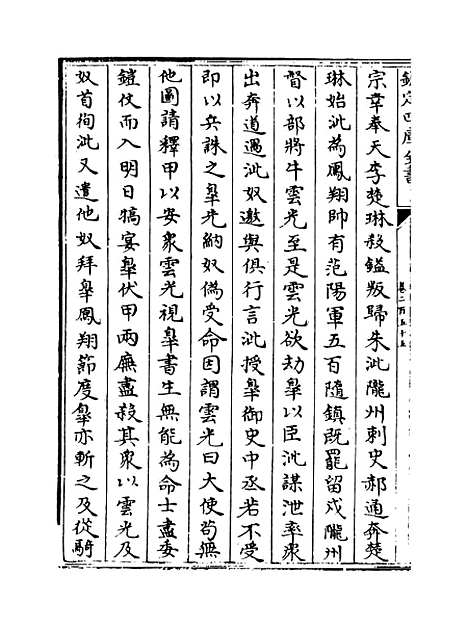 欽定四庫全書
卷二百五十五
宗幸奉天李楚琳殺鎰叛歸朱泚隴州刺史郝通奔楚
琳始泚為鳳翔帥有范陽軍五百隨鎮既罷留戍隴州
督以部將牛雲光至是雲光欲劫臯以臣泚謀泄率衆
出奔道遇泚奴邀與俱行言泚授臯御史中丞若不受
即以兵誅之臯先納奴偽受命因謂雲光曰大使茍無
他圖請釋甲以安衆雲光視臯書生無能為命士盡委
鎧仗而入明日犒宴臯伏甲兩廡盡殺其衆以雲光及
奴首徇泚又遣他奴拜臯鳳翔節度臯亦斬之及從騎